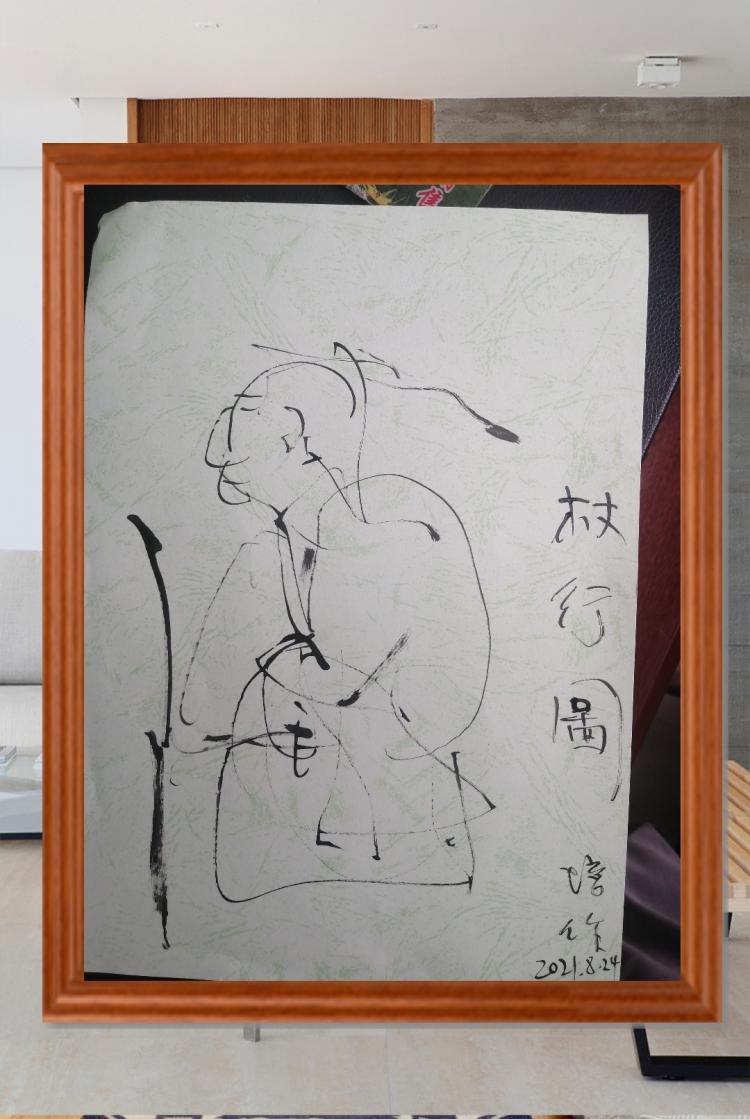 杖行圖
培作
2021.8.24